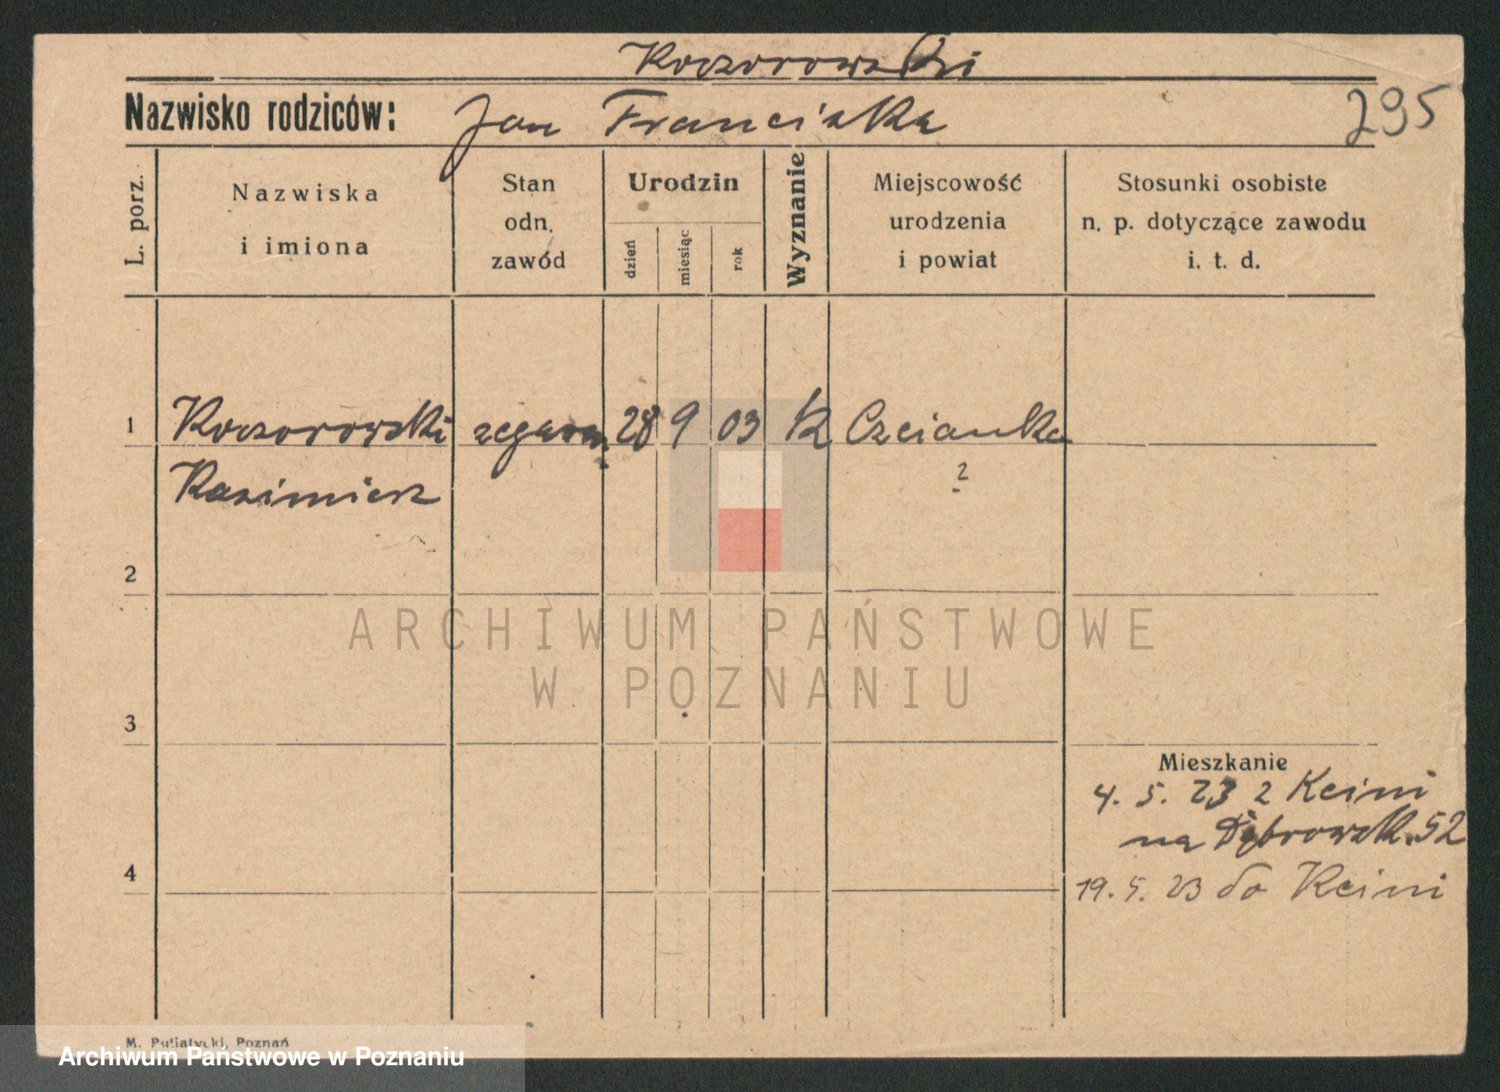 Koczorowski
Nazwisko rodziców: Jan Franciszka 295
L. porz.
Nazwiska
i imiona
Stan
odn.
zawód
Urodzin
dzień
miesiąc
rok
Wyznanie
Miejscowość
urodzenia
i powiat
Stosunki osobiste
n. p. dotyczące zawodu
i. t. d.
1 Koczorowski 28 9 03 K
Kazimierz
?
2
ARCHIWUM PAŃSTWOWE
W POZNANIU
3
Mieszkanie
4. 5. 23 z Kcini
na Dąbrowsk. 52
4
19. 5. 23 do Kcini
M. Putiatycki, Poznań
Archiwum Państwowe w Poznaniu